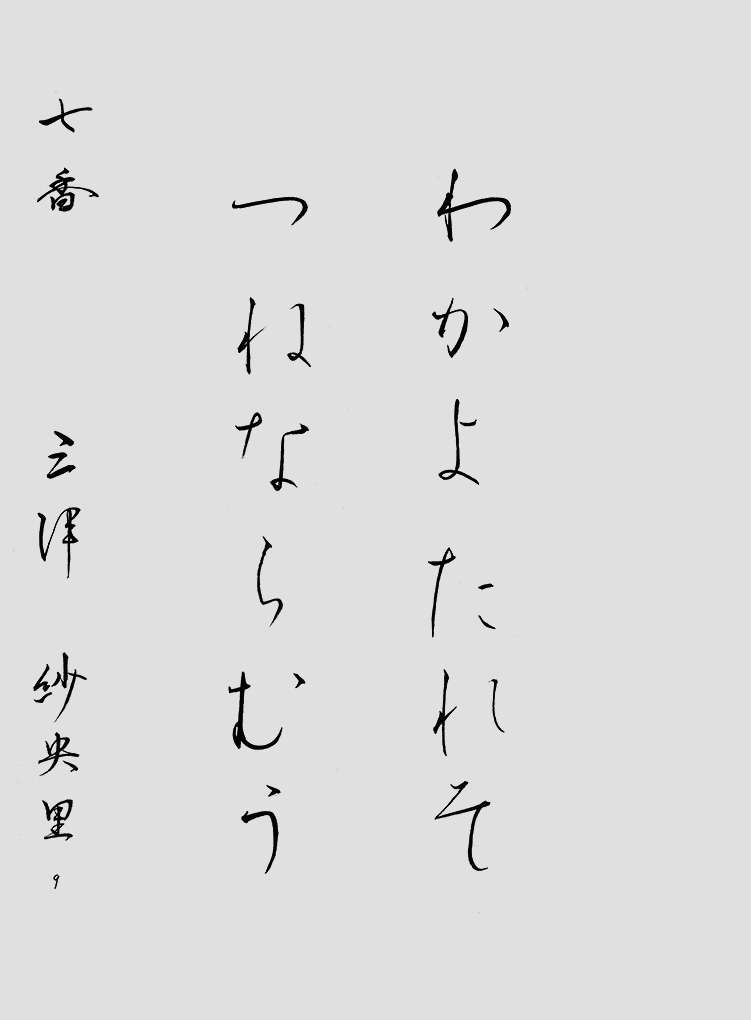 わかよたれそ
つねならむう
七番 三津 紗央里 9